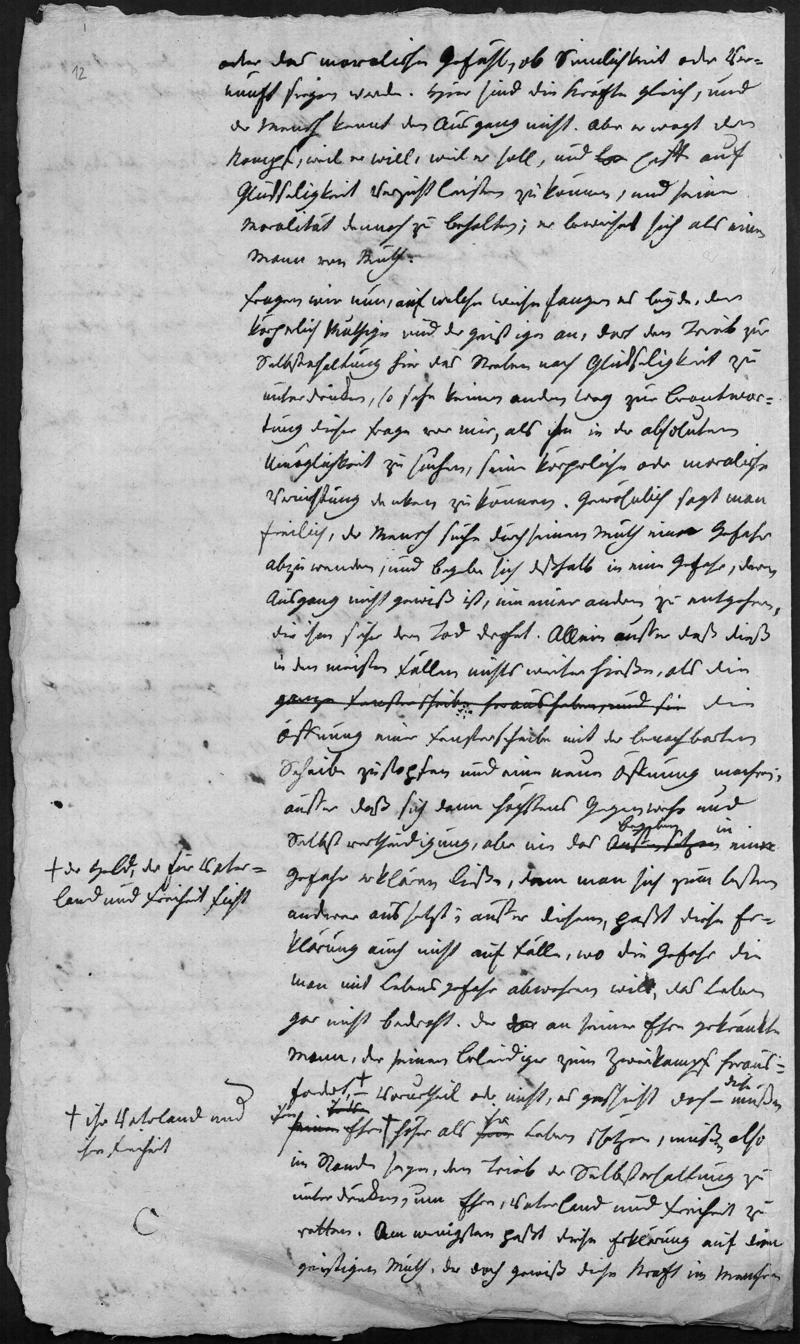 12
oder das moralische Gefühl, ob Sinnlichkeit oder Ver=
nunft siegen werde. Hier sind die Kräfte gleich, und
der Mensch kennt den Ausgang nicht. Aber er wagt den
Kampf, weil er will, weil er soll, und hofft auf
Glükseligkeit Verzicht leisten zu können, und seine
Moralität dennoch zu behalten; er beweiset sich als einen
Mann von Muth.
Fragen wir nun, auf welche weise fangen es beyde, der
körperlich Muthige und der geistige an, dort den Trieb zur
Selbsterhaltung hier das Streben nach Glükseligkeit zu
unterdrüken, so sehe keinen andern Weg zur Beantwor=
tung dieser Frage vor mir, als ihn in der absoluten
Unmöglichkeit zu suchen, seine körperliche oder moralische
Vernichtung denken zu können. Gewöhnlich sagt man
freilich, der Mensch suche durch seinen Muth eine Gefahr
abzuwenden, und begebe sich deßhalb in eine Gefahr, deren
Ausgang nicht gewiß ist, um einer andern zu entgehen,
die ihm sicher den Tod drohet. Allein ausser daß dieß
in den meisten Fällen nichts weiter hieße, als die
ganze Fensterscheibe herausheben, und sie die
Öffnung einer Fensterscheibe mit der benachbarten
Scheibe zustopfen und eine neue Öffnung machen;
ausser daß sich dann höchstens Gegenwehr und
begeben in
Selbstvertheidigung, aber nie das Aussetzen eine
Gefahr erklären ließe, dem man sich zum besten
anderer aussetzt; ausser diesem, paßt diese Er=
klärung auch nicht auf Fälle, wo die Gefahr die
man mit Lebensgefahr abwehren will, das Leben
gar nicht bedroht. Der an seiner Ehre gekränkte
Mann, der seinen Beleidiger zum Zweikampf heraus=
fodert, † – Vorurtheil oder nicht, es geschieht doch – müßen
ihre
seine Ehre † höher als ihr Leben schätzen, müßen also
im Stande seyn, den Trieb der Selbsterhaltung zu
unterdrüken, um Ehre, Vaterland und Freiheit zu
retten. Am wenigsten paßt diese Erklärung auf den
geistigen Muth, der doch gewiß diese Kraft im Menschen
† der Held, der für Vater=
land und Freiheit ficht
† ihr Vaterland und
ihre Freiheit